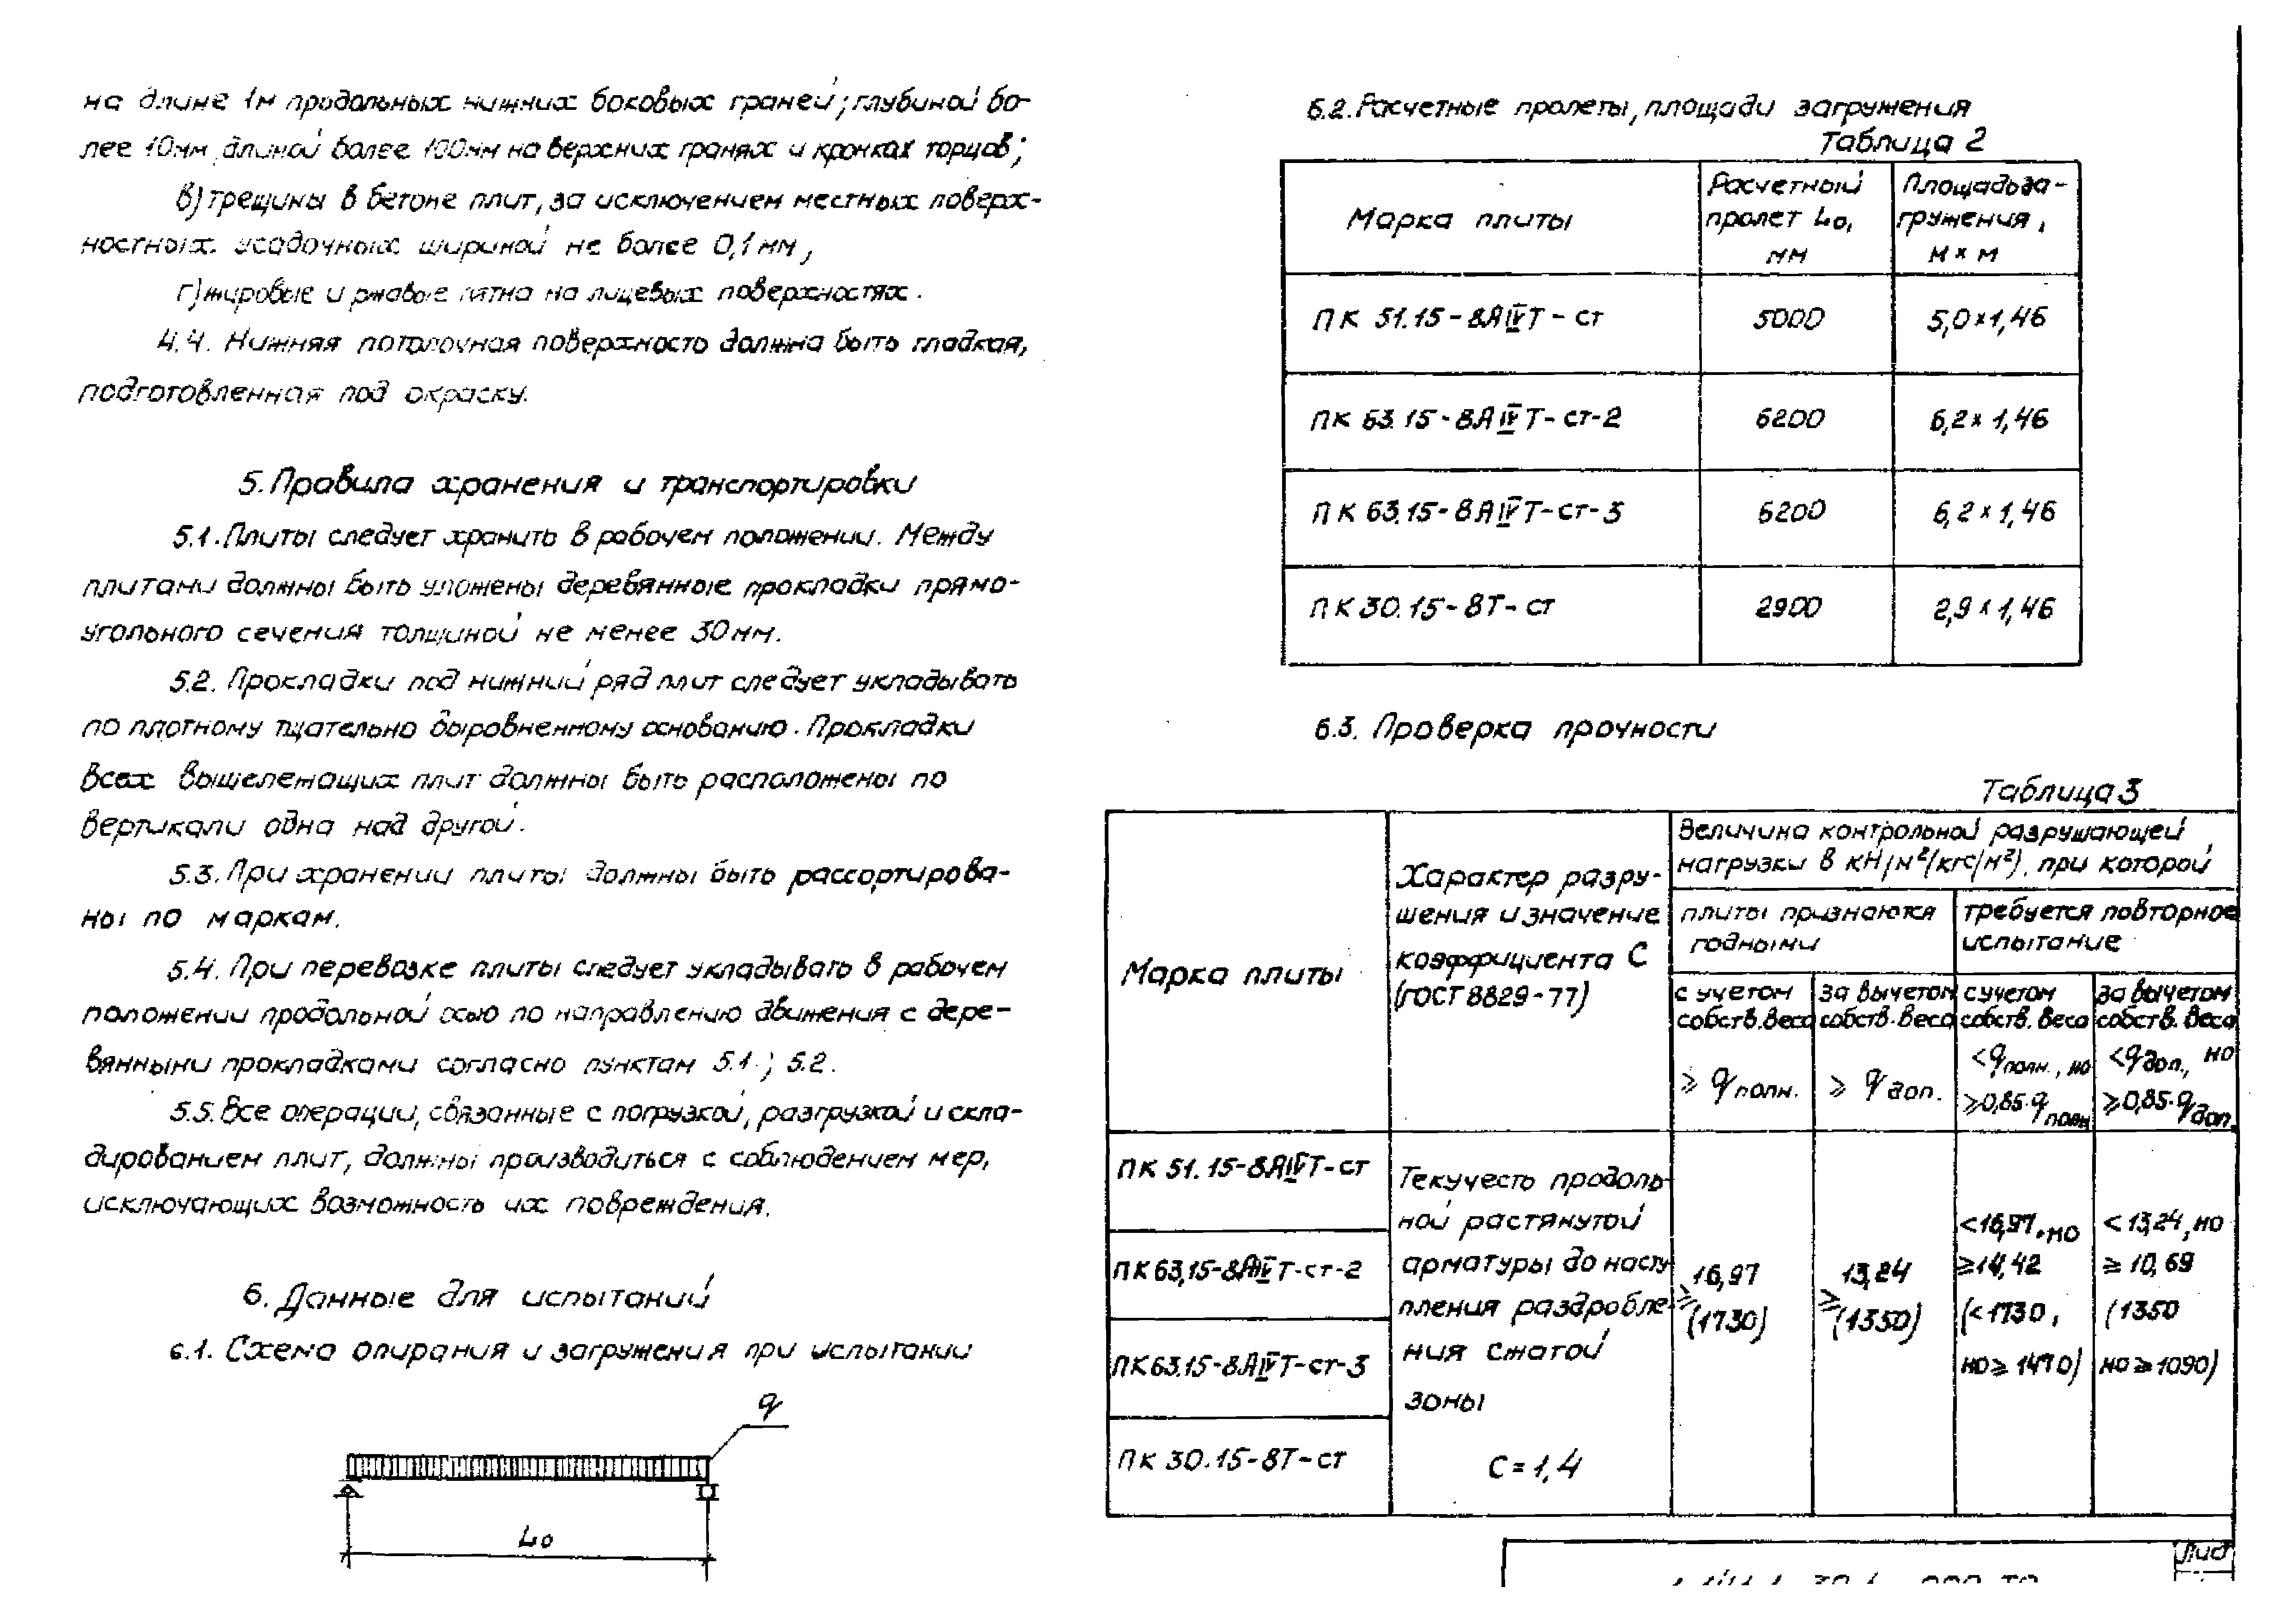 на длине 1м продольных нижних боковых граней; глубиной бо-
лее 10мм, длиной более 100мм на верхних гранях и кромках торцов;
в) трещины в бетоне плит, за исключением местных поверх-
ностных усадочных шириной не более 0,1мм,
г) жировые и ржавые пятна на лицевых поверхностях.
4.4. Нижняя потолочная поверхность должна быть гладкая,
подготовленная под окраску.
5. Правила хранения и транспортировки
5.1. Плиты следует хранить в рабочем положении. Между
плитами должны быть уложены деревянные прокладки прямо-
угольного сечения толщиной не менее 30мм.
5.2. Прокладки под нижний ряд плит следует укладывать
по плотному тщательно выровненному основанию. Прокладки
всех вышележащих плит должны быть расположены по
вертикали одна над другой.
5.3. При хранении плиты должны быть рассортирова-
ны по маркам.
5.4. При перевозке плиты следует укладывать в рабочем
положении продольной осью по направлению движения с дере-
вянными прокладками согласно пунктам 5.1.; 5.2.
5.5. Все операции, связанные с погрузкой, разгрузкой и скла-
дированием плит, должны производиться с соблюдением мер,
исключающих возможность их повреждения.
6. Данные для испытаний
6.1. Схема опирания и загружения при испытании
q
L₀
6.2. Расчетные пролеты, площади загружения
Таблица 2
Марка плиты
Расчетный
пролет L₀,
мм
Площадь за-
гружения,
м × м
ПК 51.15-8АIVТ-ст 5000 5,0×1,46
ПК 63.15-8АIVТ-ст-2 6200 6,2×1,46
ПК 63.15-8АIVТ-ст-3 6200 6,2×1,46
ПК 30.15-8Т-ст 2900 2,9×1,46
6.3. Проверка прочности
Таблица 3
Марка плиты
Характер разру-
шения и значение
коэффициента С
(ГОСТ 8829-77)
Величина контрольной разрушающей
нагрузки в кН/м²/(кгс/м²), при которой
плиты признаются
годными
требуется повторное
испытание
с учетом
собств. веса
за вычетом
собств. веса
с учетом
собств. веса
за вычетом
собств. веса
≥ qполн.
≥ qдоп.
<qполн., но
≥0,85·qполн
<qдоп., но
≥0,85·qдоп.
ПК 51.15-8АIVТ-ст
ПК 63,15-8АIVТ-ст-2
ПК 63.15-8АIVТ-ст-3
ПК 30.15-8Т-ст
Текучесть продоль-
ной растянутой
арматуры до насту
пления раздробле-
ния сжатой
зоны
С=1,4
≥ 16,97
(1730)
≥ 13,24
(1350)
<16,97, но
≥14,42
(<1730,
но ≥ 1470)
<13,24, но
≥ 10,69
(1350
но ≥1090)
Лист